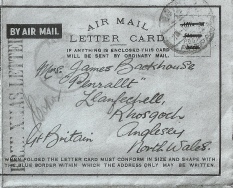 AIR MAIL
BY AIR MAIL
LETTER CARD
IF ANYTHING IS ENCLOSED THIS CARD
WILL BE SENT BY ORDINARY MAIL.
Mrs. James Backhouse
"Penrallt"
Llanfechell,
Rhosgoch
Anglesey
North Wales.
Gt Britain
WHEN FOLDED THE LETTER CARD MUST CONFORM IN SIZE AND SHAPE WITH
THE BLUE BORDER WITHIN WHICH THE ADDRESS ONLY MAY BE WRITTEN.